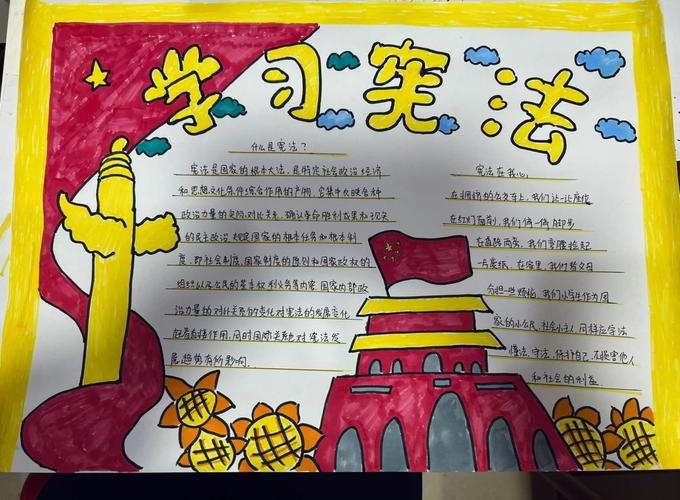 学习宪法
什么是宪法？
宪法是国家的根本大法，是特定社会政治经济
和思想文化条件综合作用的产物，它集中反映各种
政治力量的实际对比关系，确认革命胜利成果和现实
的民主政治，规定国家的根本任务和根本制
度，即社会制度、国家制度的原则和国家政权的
组织以及公民的基本权利义务等内容。国家内部政
治力量的对比关系的变化对宪法的发展变化
起着直接作用，同时国际关系也对宪法发
展趋势有所影响。
宪法在我心，
在拥挤的公交车上，我们让一让座位
在红灯面前，我们停一停脚步
在直路两旁，我们弯腰捡起
一片废纸，在家里，我们替父母
分担一些烦恼，我们小学生作为国
家的小公民，社会小主人，同样应学法
懂法、守法，保护自己，不损害他人
和社会的利益